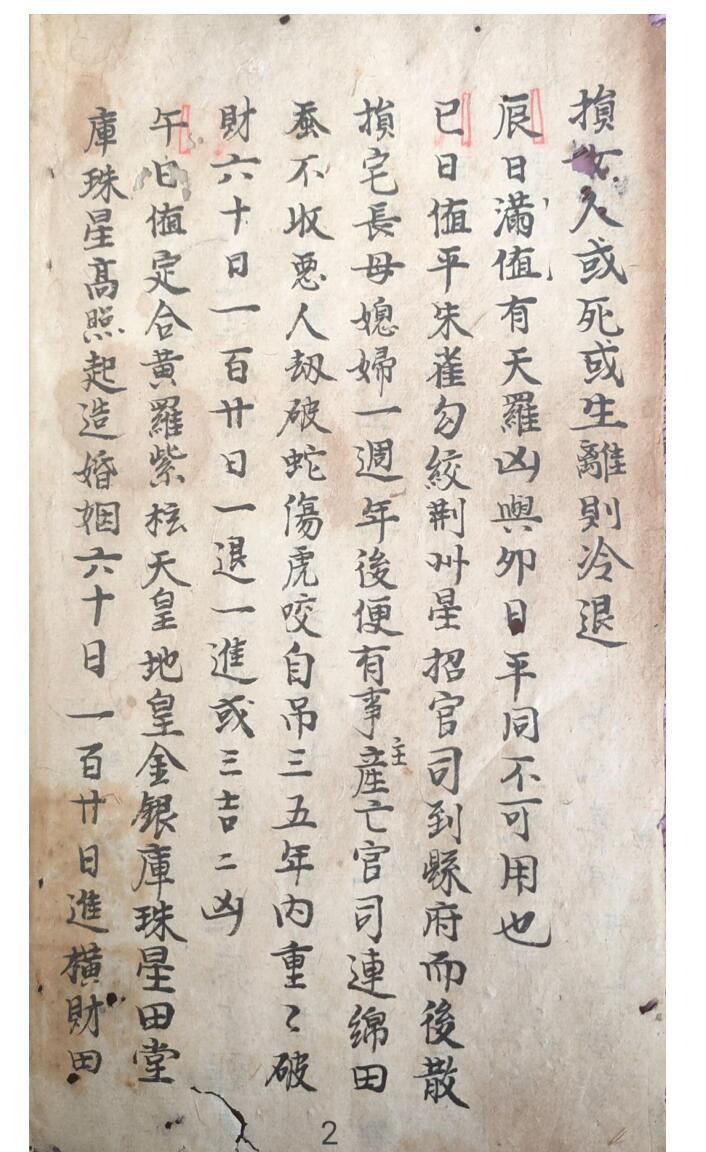 損女人或死或生離則冷退
辰日滿值有天羅凶與卯日平同不可用也
巳日值平朱雀勾絞荆州星招官司到縣府而後散
損宅長母媳婦一週年後便有事主產亡官司連綿田
蚕不收惡人刼破蛇傷虎咬自吊三五年内重〻破
財六十日一百廿日一退一進或三吉二凶
午日值定合黄羅紫柱天皇地皇金銀庫珠星田堂
庫珠星高照起造婚姻六十日一百廿日進橫財田
2